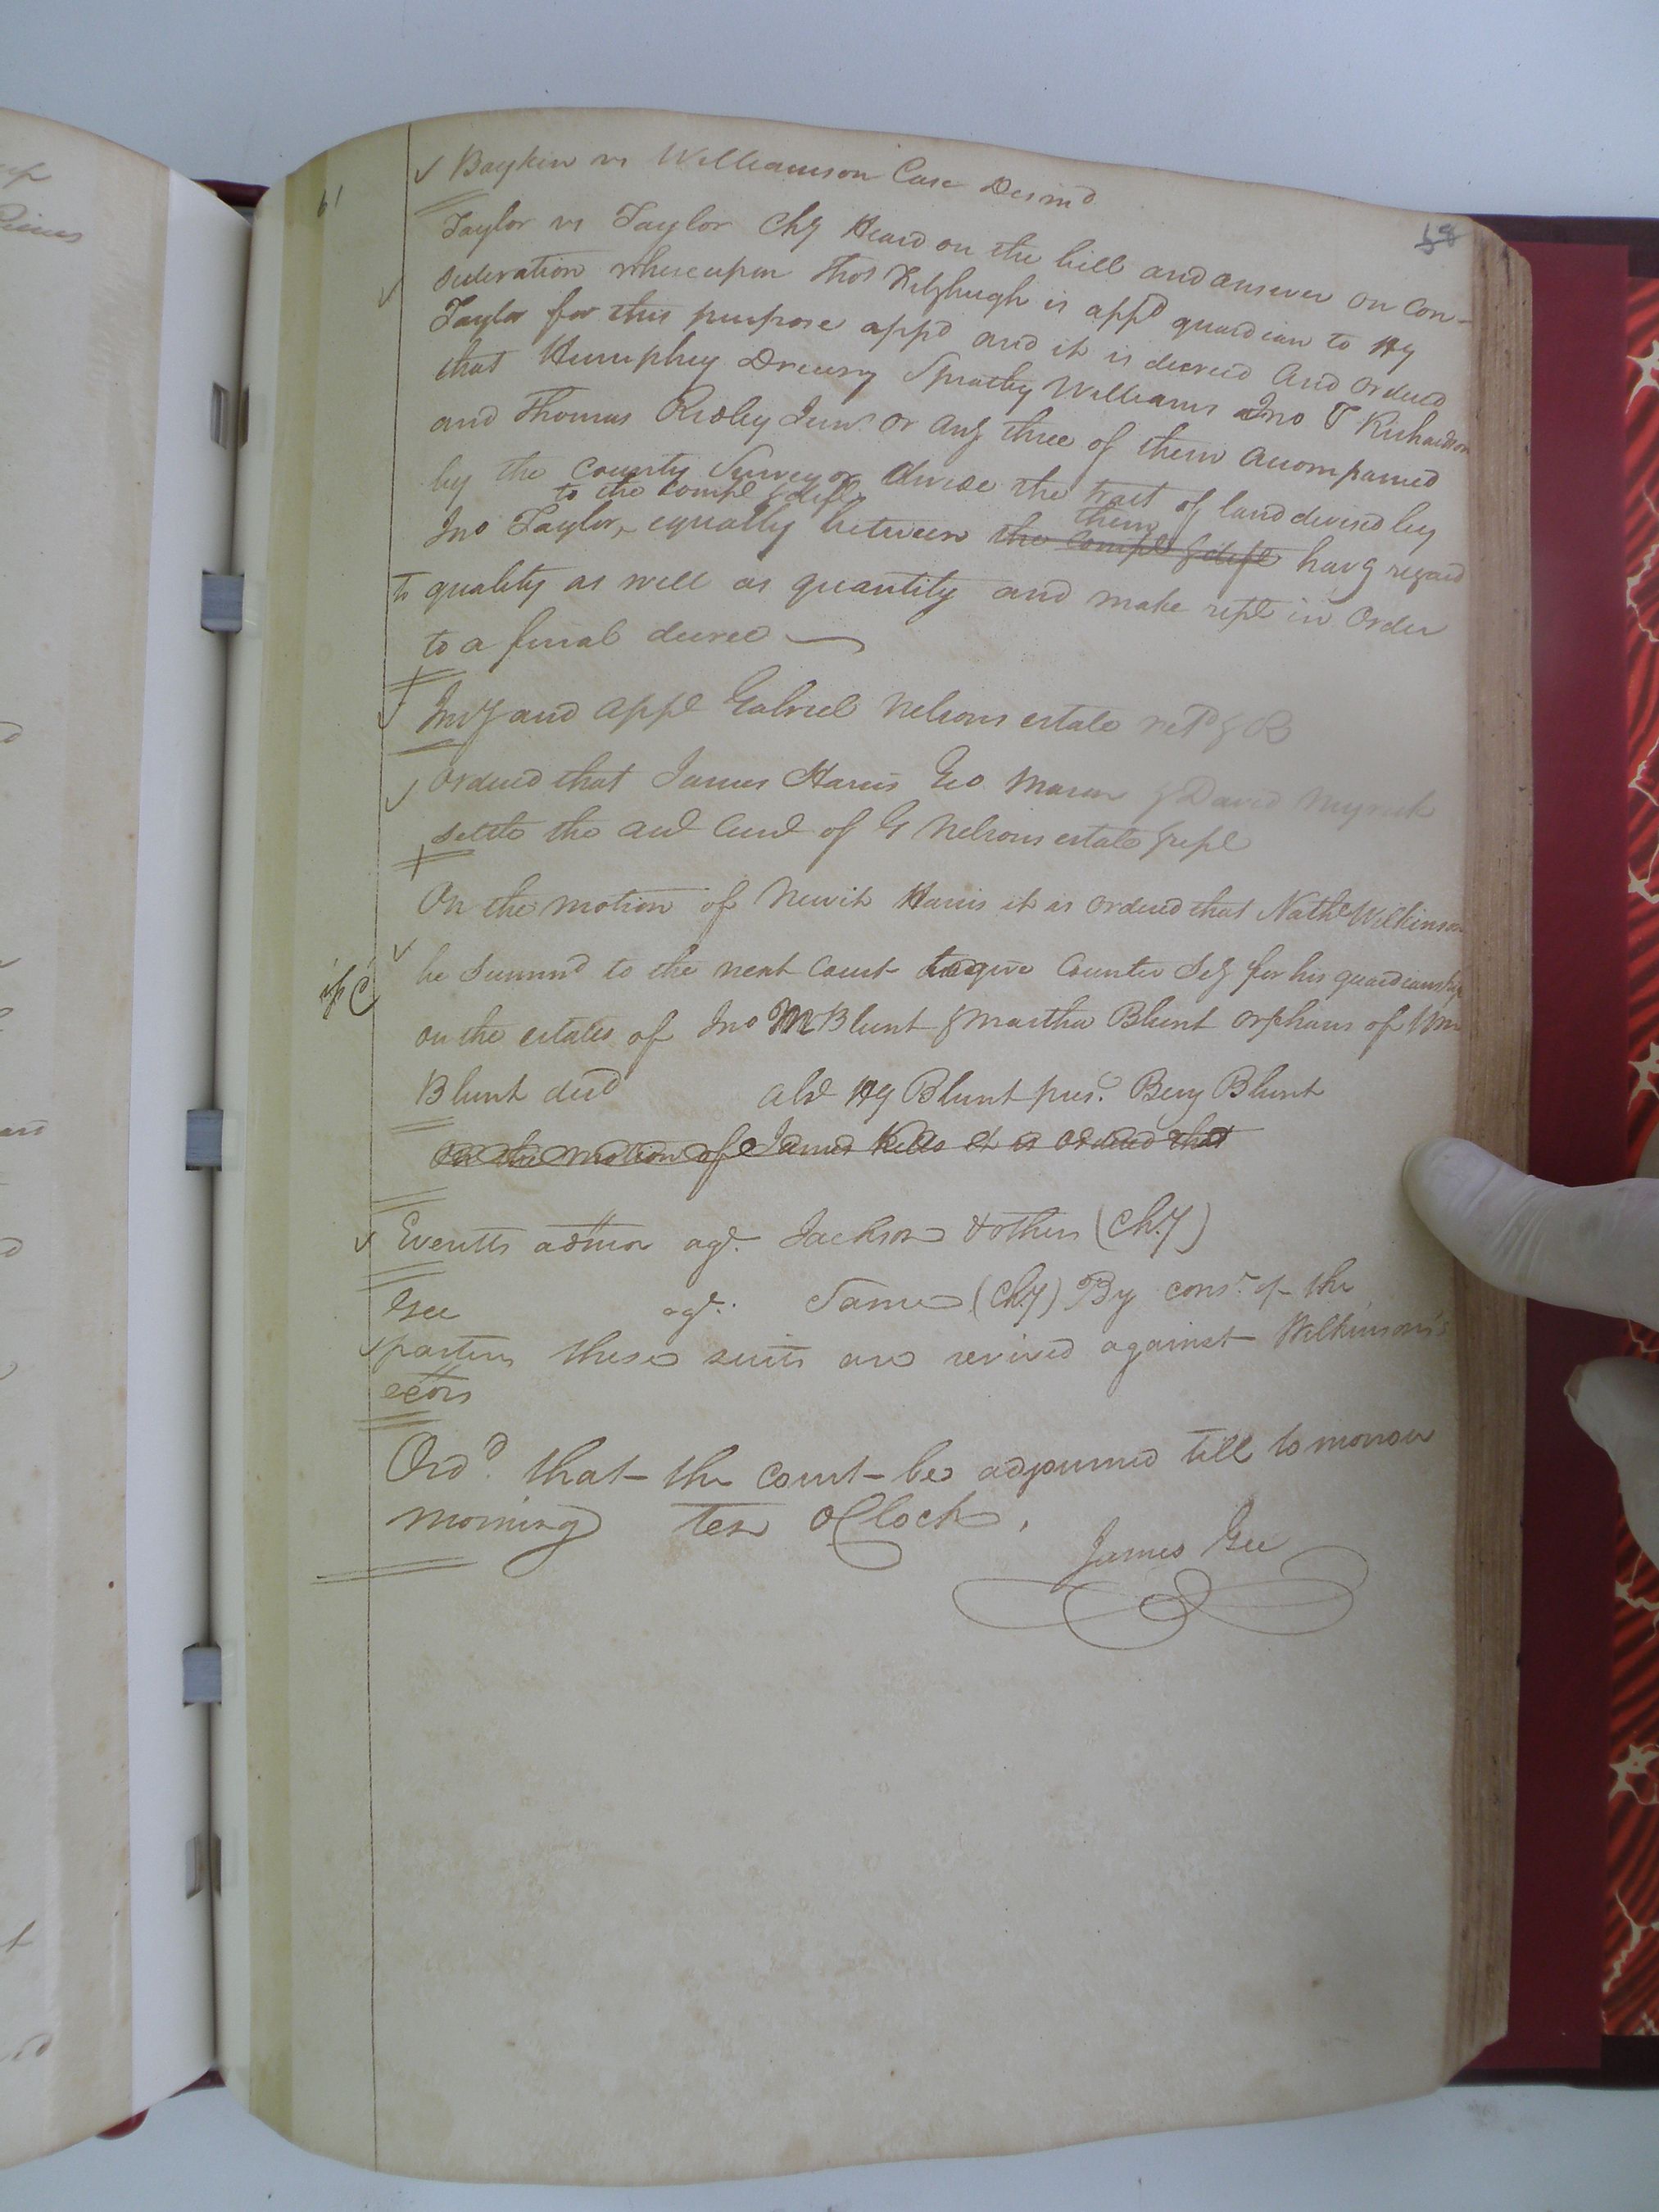 61
58
Boykin vs Williamson Case Desmd
Taylor vs Taylor Chy Heard on the bill and answer on con-
sideration whereupon Thos Fitzhugh is appd guardian to Hy
Taylor for this purpose appd and it is decreed and ordered
that Humphrey Drewry Spratley Williams Jno T Richardson
and Thomas Ridley Junr or any three of them accompanied
by the County Surveyor divide the tract of land devised by
to the compl & deft them
Jno Taylor, equally between the compl & deft havg regard
to quality as well as quantity and make rept in order
to a final decree
Invy and appt Gabriel Nelsons estate retd & R
Ordered that James Harris Geo Mason & David Myrick
settle the aud Curt of G Nelsons estate & rept
On the motion of Newit Harris it is ordered that Nathl Wilkinson
be Summd to the next Court to give Counter Sey for his guardianship
on the estates of Jno M Blunt & Martha Blunt orphans of Wm
Blunt decd abst Hy Blunt pres. Benj Blunt
On the motion of James Kello it is ordered that
Everitts admor agt. Jackson & others (Chy)
Gee agt. Same (Chy) By const. of the
parties these suits are revived against Wilkinson's
exors
Ord. that the court be adjourned till to morrow
morning ten oClock.
James Gee